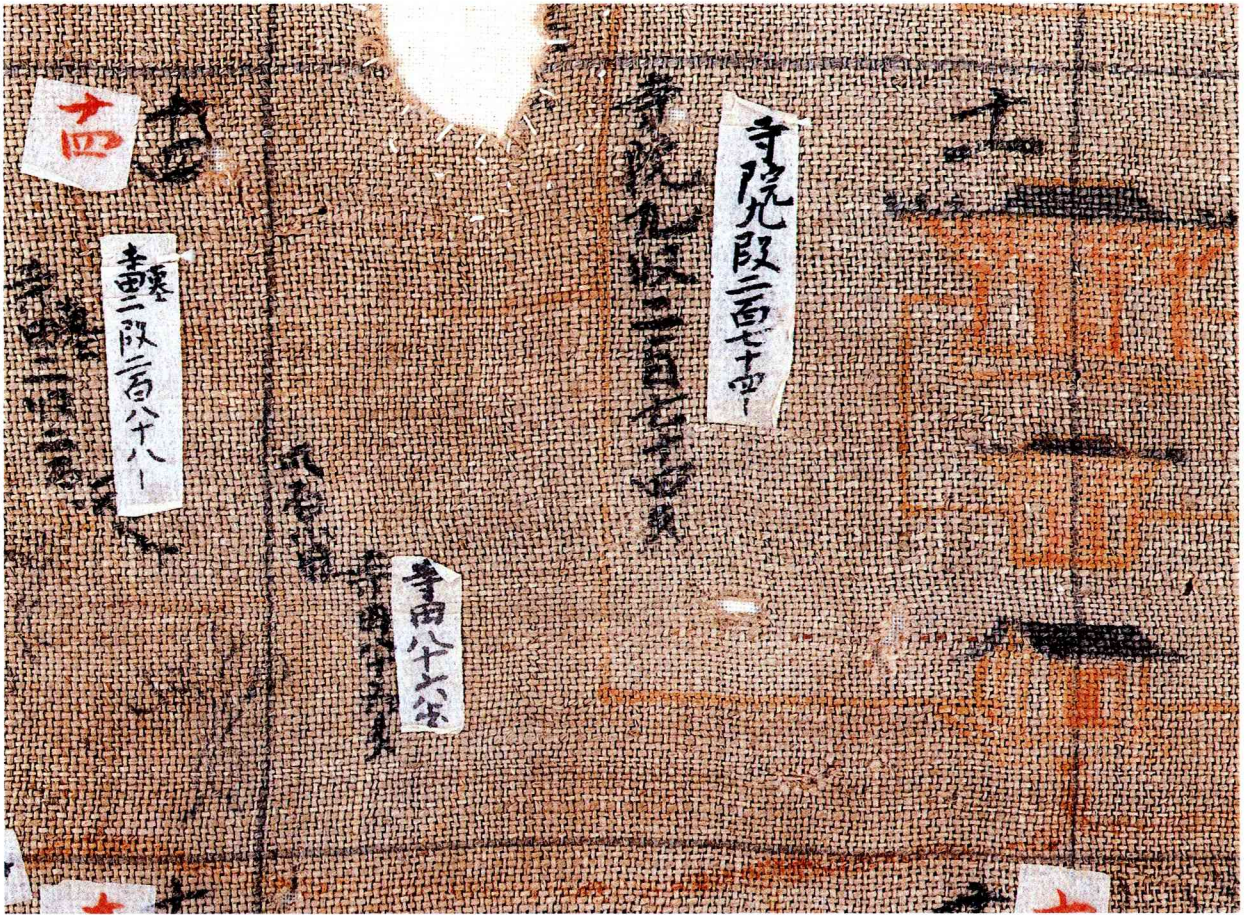 十一
寺院九段二百七十四卜
寺院九段二百七十四歩
寺田八十六歩
寺田八十六歩
十四
十四
寺田二段二百八十八卜
寺田二段二百